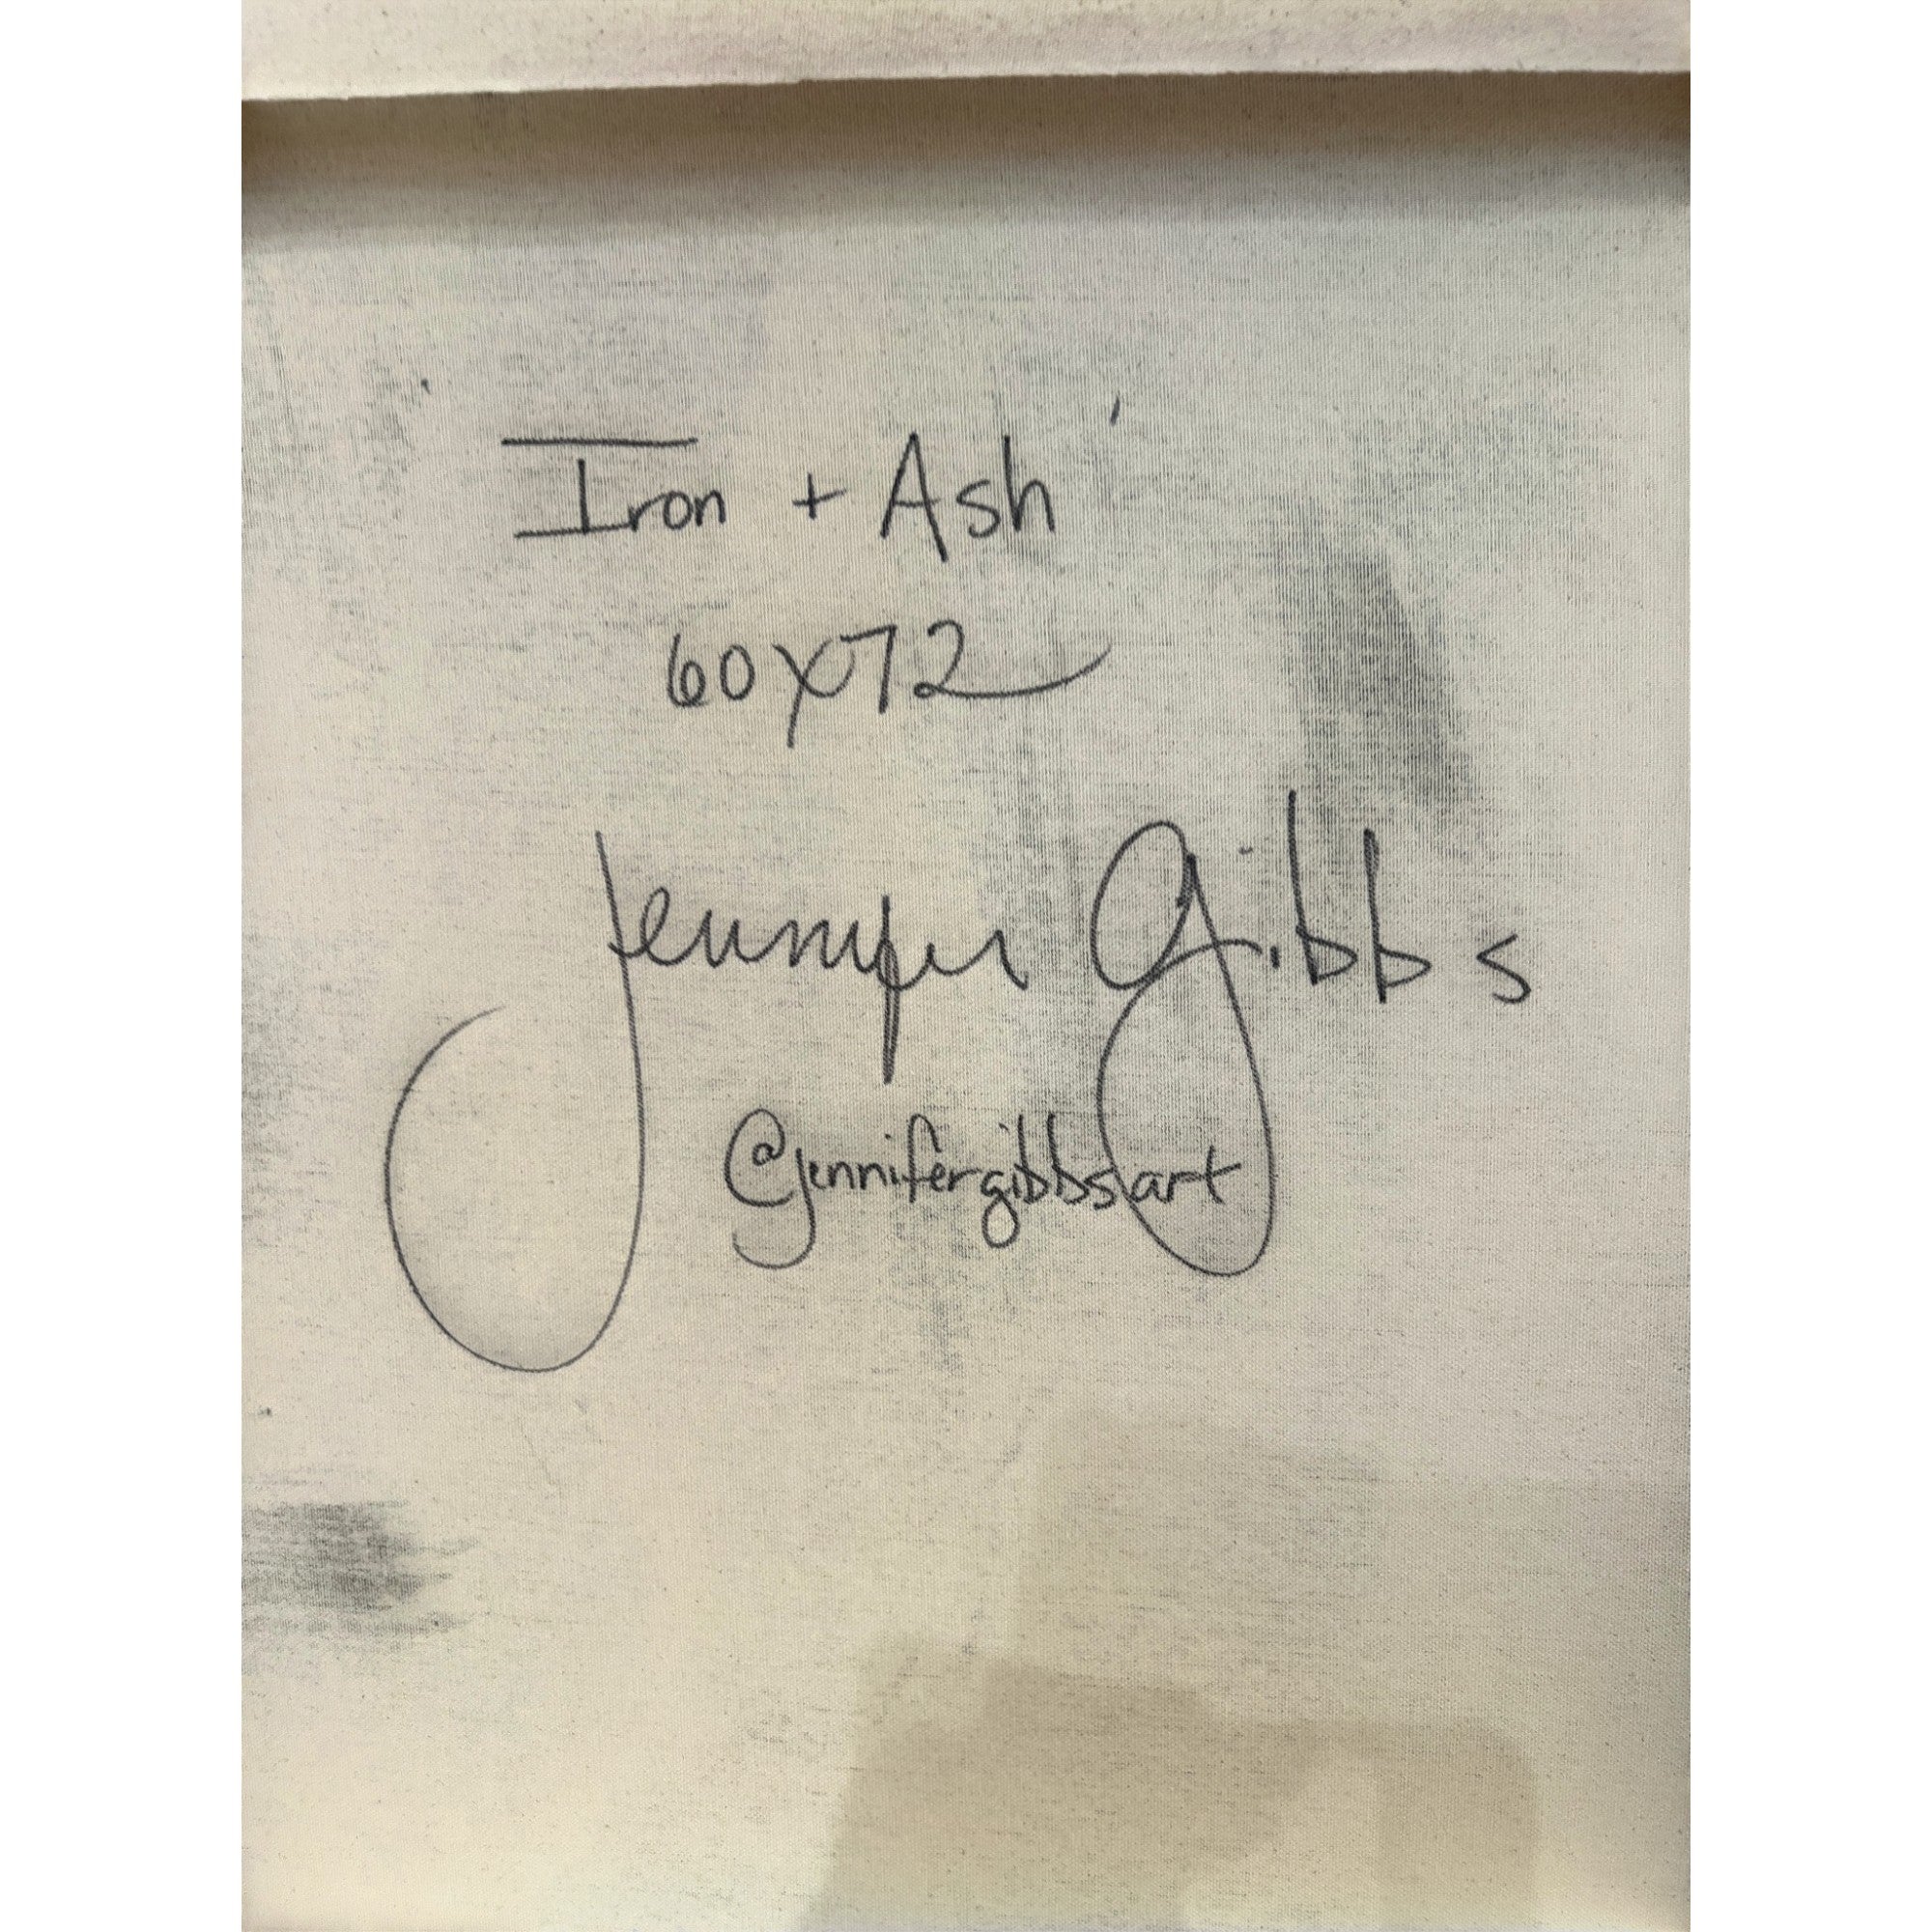 Iron + Ash
60x72
Jennifer Gibbs
@jennifergibbsart